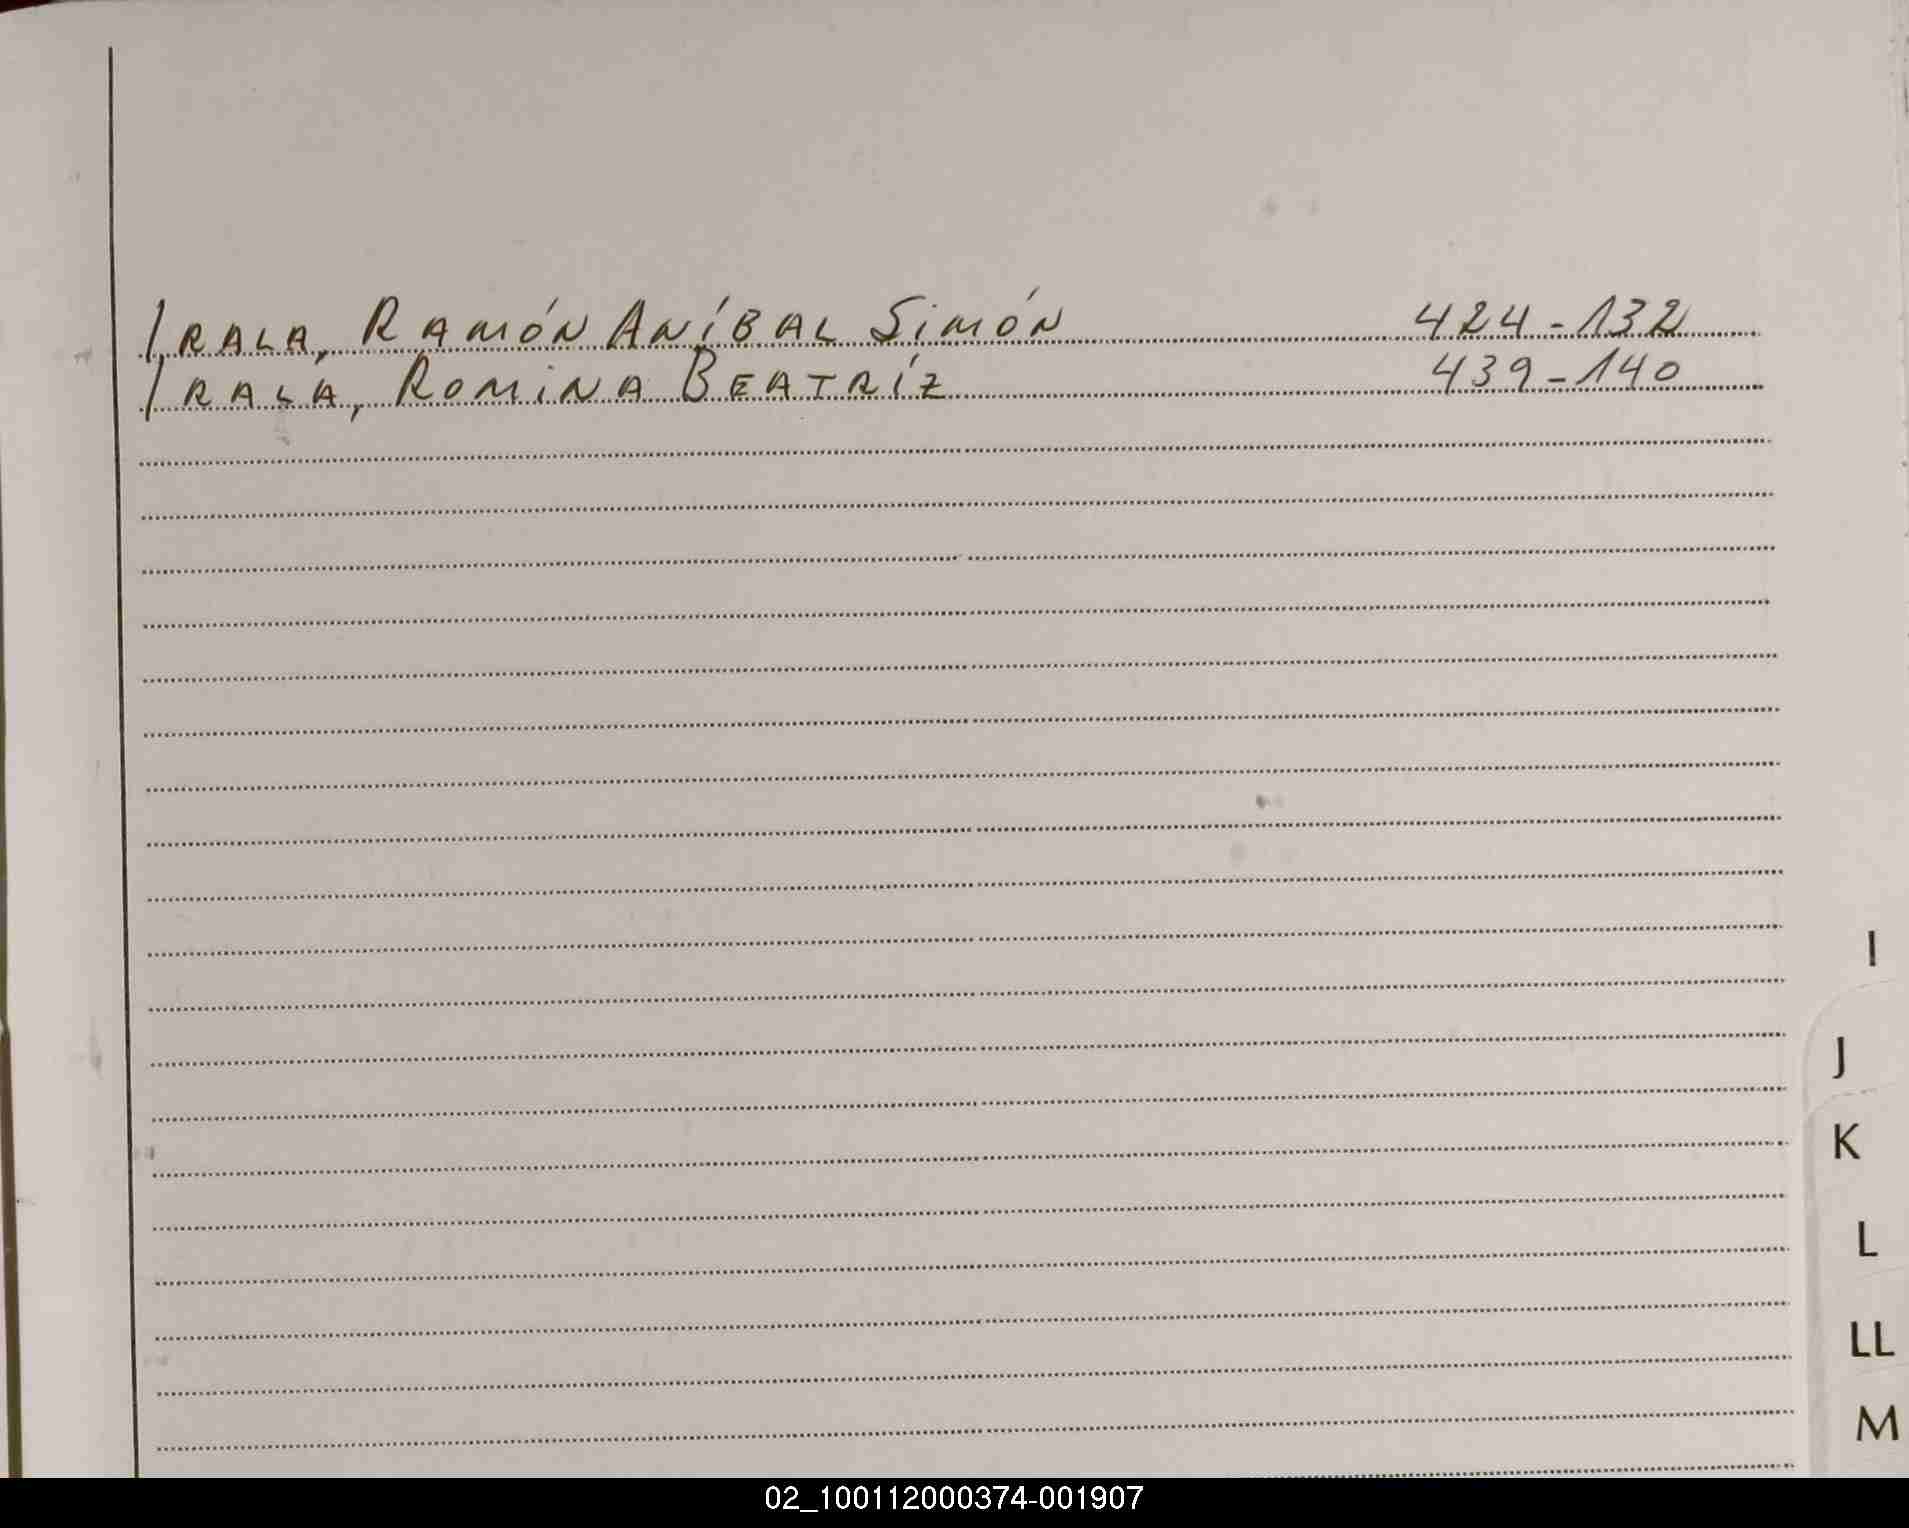 IRALA, RAMÓN ANÍBAL SIMÓN 424-132
IRALA, ROMINA BEATRÍZ 439-140
I
J
K
L
LL
M
02_100112000374-001907